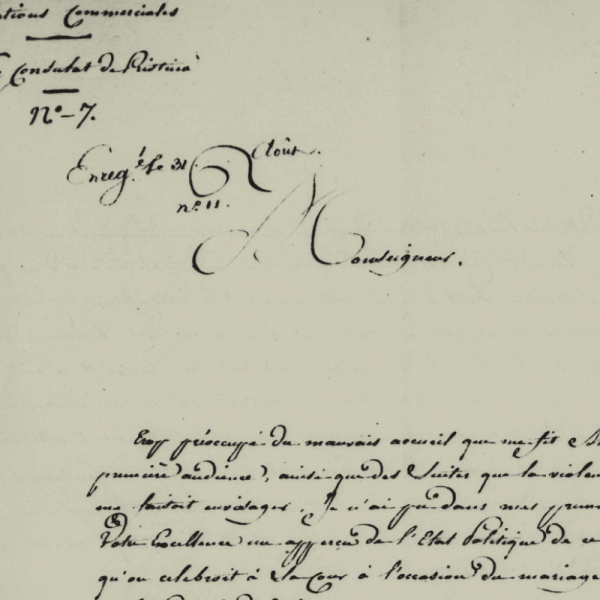 ations Commerciales
Consulat de
N.o - 7.
Enreg.é le 31 Août.
n.o 11.
Monseigneur.
Trop préoccupé du mauvais accueil que me fit
première audience, ainsi que des Suites que la violen
me faisoit envisager. Je n'ai pu dans mes prem
Votre Excellence un apperçu de l'Etat Politique de ce
qu'on celebroit à la Cour à l'occasion du mariage